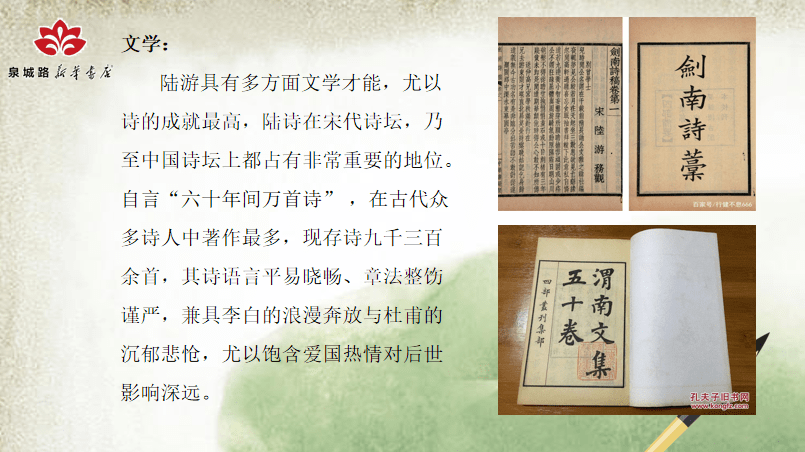 泉城路新华书店
文学：
陆游具有多方面文学才能，尤以
诗的成就最高，陆诗在宋代诗坛，乃
至中国诗坛上都占有非常重要的地位。
自言“六十年间万首诗”，在古代众
多诗人中著作最多，现存诗九千三百
余首，其诗语言平易晓畅、章法整饬
谨严，兼具李白的浪漫奔放与杜甫的
沉郁悲怆，尤以饱含爱国热情对后世
影响深远。
劍南詩稿卷第一
宋 陸游 務觀
劍南詩藁
百家号/行健不息666
渭南文集
五十卷
四部叢刊集部
孔夫子旧书网
www.kongfz.com